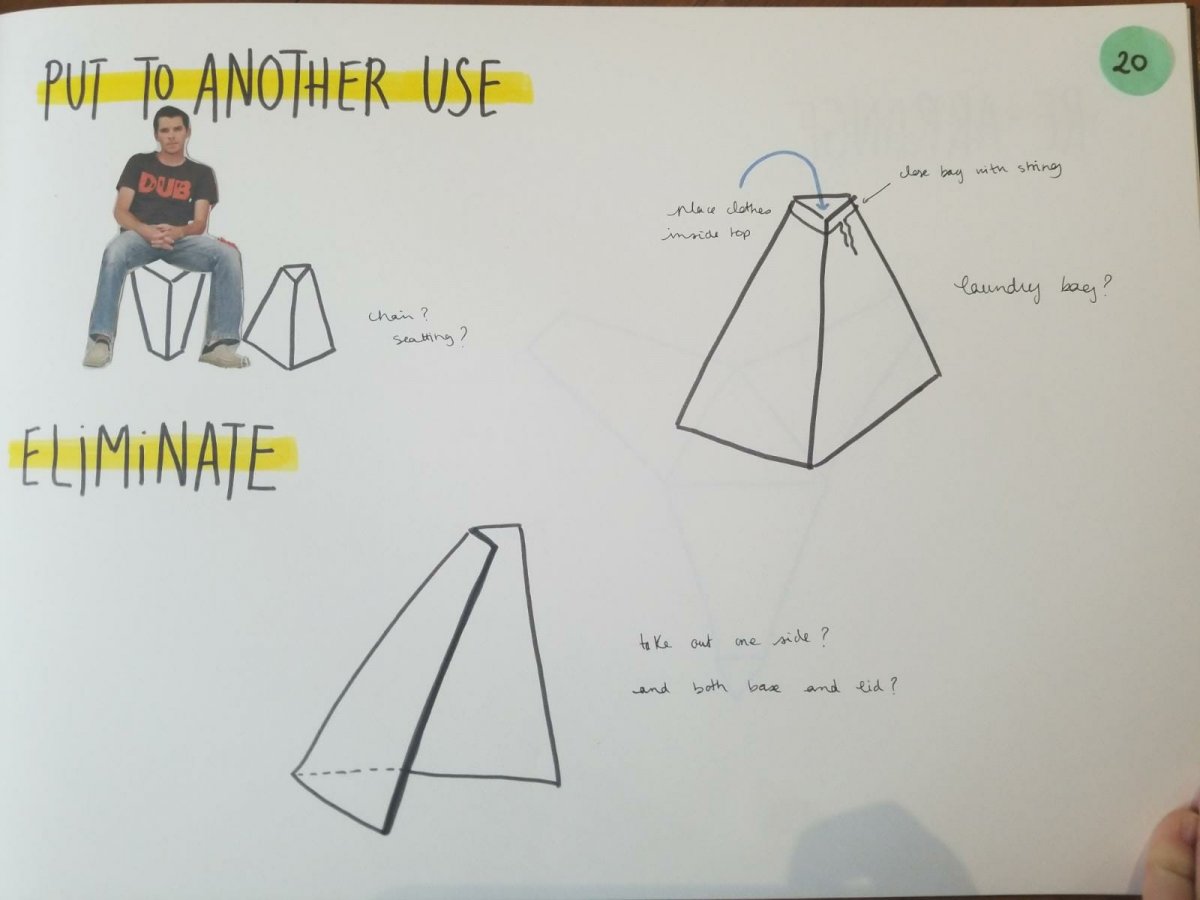 PUT TO ANOTHER USE
20
DUB
close bag with string
place clothes
inside top
laundry bag?
chair?
seatting?
ELiMiNATE
take out one side?
and both base and lid?